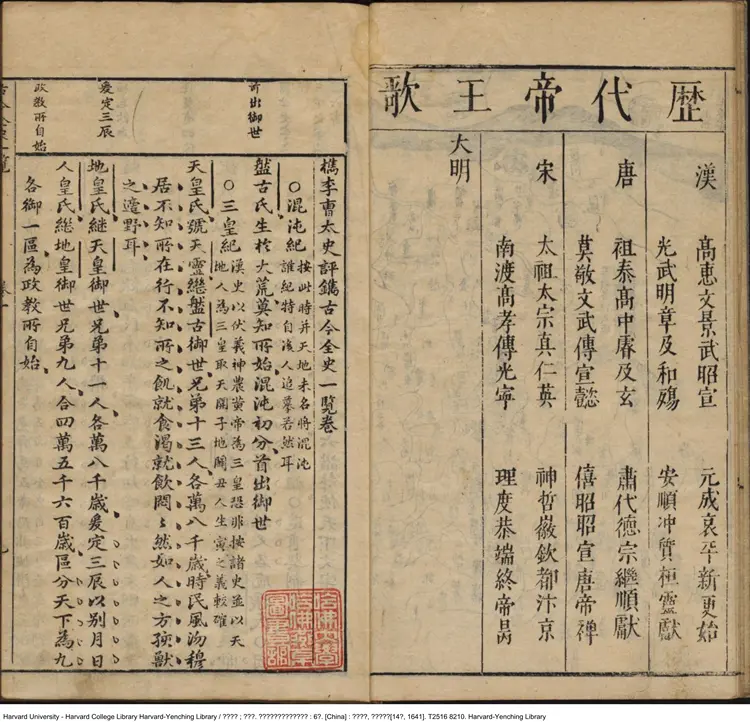 歷代帝王歌
漢 高惠文景武昭宣 元成哀平新更始
光武明章及和殤 安順冲質桓靈獻
唐 祖泰高中睿及玄 肅代德宗繼順憲
莫敬文武傳宣懿 僖昭昭宣唐帝禅
宋 太祖太宗真仁英 神哲徽欽都汴京
南渡高孝傳光寧 理度恭端終帝昺
大明
首出御世
爰定三辰
政教所自始
檇李曹太史評鐫古今全史一覽卷
○混沌紀 按此時并天地未名將混沌
誰紀特自後人追摹若然耳
盤古氏生於大荒莫知所始混沌初分首出御世
○三皇紀 漢史以伏羲神農黃帝為三皇恐非按諸史並以天
地人為三皇取天開子地闢丑人生寅之義較確
天皇氏號天靈繼盤古御世兄弟十三人各萬八千歲時民風沕穆
居不知所在行不知所之飢就食渴就飲悶〻然如人之方孩獸
之遽野耳
地皇氏繼天皇御世兄弟十一人各萬八千歲爰定三辰以別月日
人皇氏繼地皇御世兄弟九人合四萬五千六百歲區分天下為九
各御一區為政教所自始
哈佛大學
哈佛燕京
圖書館
Harvard University - Harvard College Library Harvard-Yenching Library / ???? ; ???. ????????????? : 6?. [China] : ????, ?????[14?, 1641]. T2516 8210. Harvard-Yenching Library